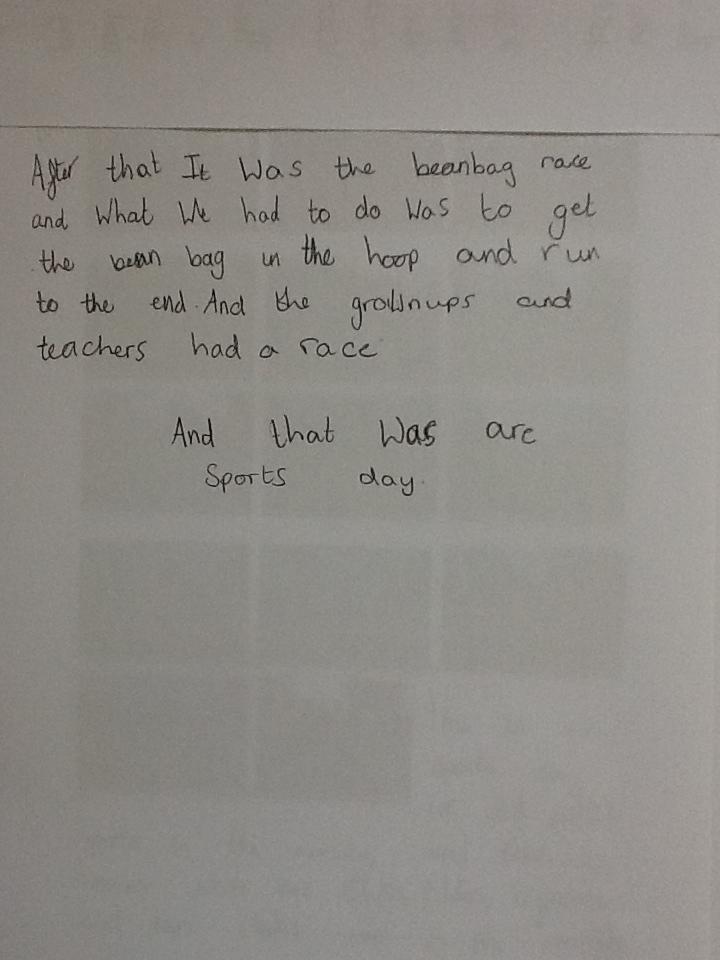 After that It Was the beanbag race
and What We had to do Was to get
the bean bag in the hoop and run
to the end. And the groWnups and
teachers had a race
And that Was are
Sports day.